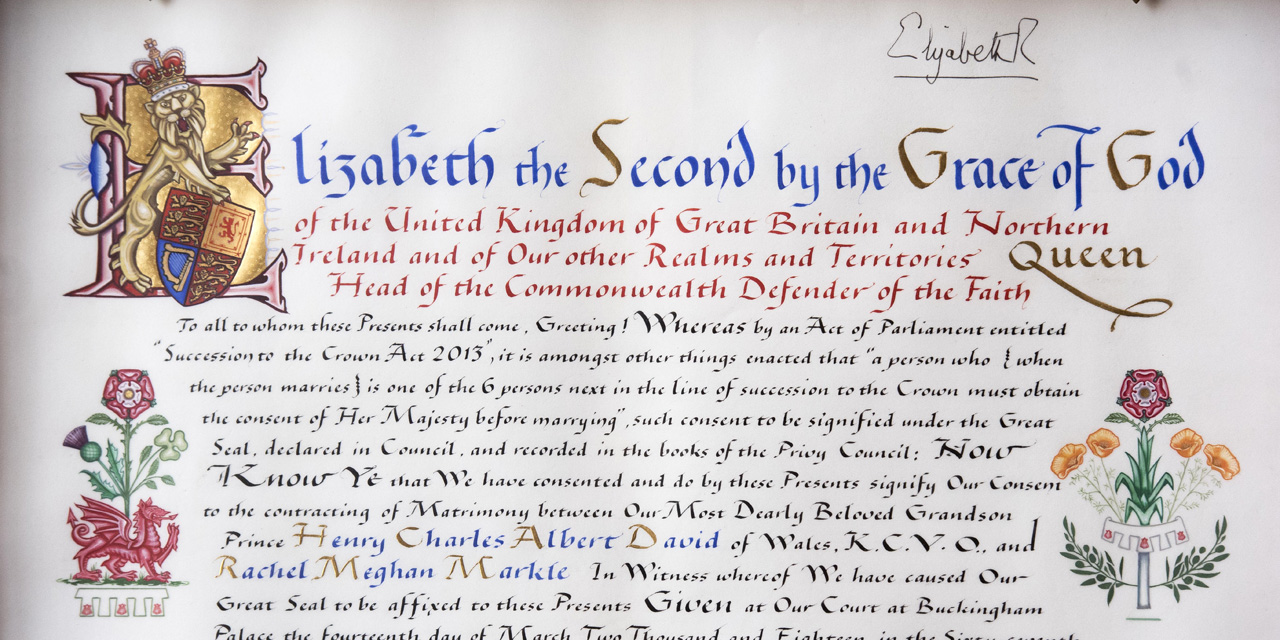 Elizabeth R
Elizabeth the Second by the Grace of God
of the United Kingdom of Great Britain and Northern
Ireland and of Our other Realms and Territories Queen
Head of the Commonwealth Defender of the Faith
To all to whom these Presents shall come, Greeting! Whereas by an Act of Parliament entitled
"Succession to the Crown Act 2013", it is amongst other things enacted that "a person who { when
the person marries } is one of the 6 persons next in the line of succession to the Crown must obtain
the consent of Her Majesty before marrying", such consent to be signified under the Great
Seal, declared in Council, and recorded in the books of the Privy Council; Now
Know Ye that We have consented and do by these Presents signify Our Consent
to the contracting of Matrimony between Our Most Dearly Beloved Grandson
Prince Henry Charles Albert David of Wales, K.C.V.O., and
Rachel Meghan Markle In Witness whereof We have caused Our
Great Seal to be affixed to these Presents Given at Our Court at Buckingham
Palace the fourteenth day of March Two Thousand and Eighteen in the Sixty-seventh